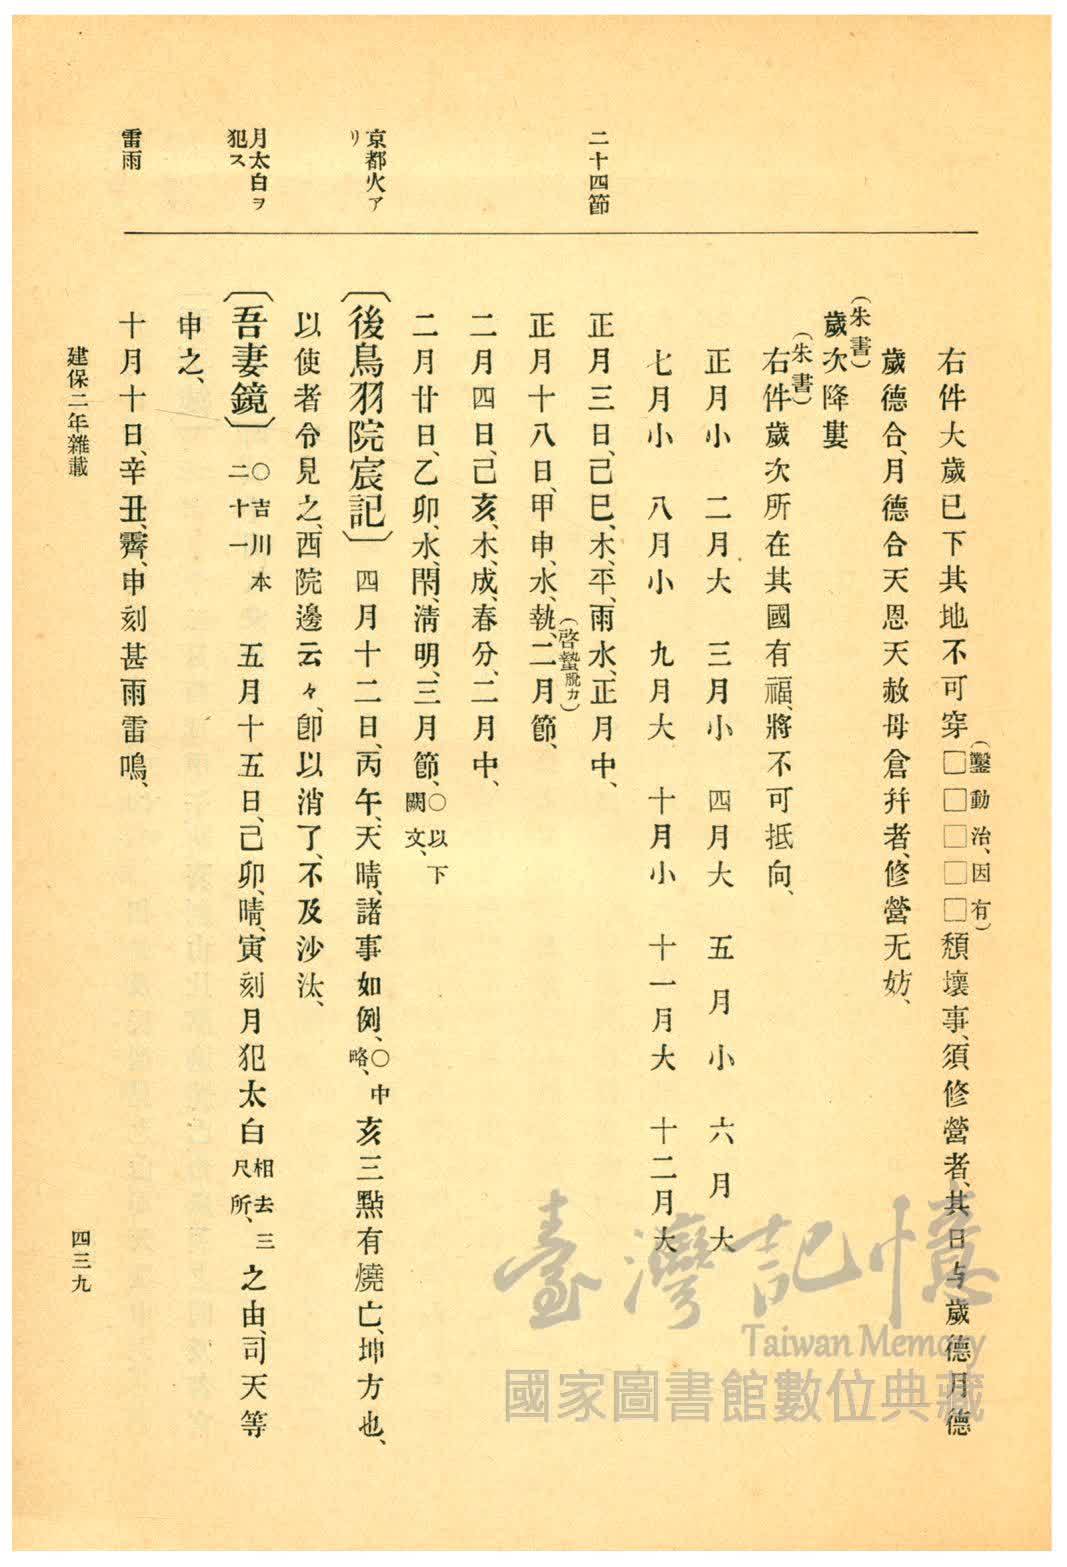 右件大歲已下其地不可穿□□□□□(鑿動治、因有)頽壞事、須修營者、其日与歲德月德
歲德合、月德合天恩天赦母倉幷者、修營无妨、
(朱書)
歲次降婁
(朱書)
右件歲次所在其國有福、將不可抵向、
正月小 二月大 三月小 四月大 五月小 六月大
七月小 八月小 九月大 十月小 十一月大 十二月大
二十四節
正月三日、己巳、木、平、雨水、正月中、
正月十八日、甲申、水、執、二月節、(啓蟄脫カ)
二月四日、己亥、木、成、春分、二月中、
二月廿日、乙卯、水、閇、淸明、三月節、○以下闕文、
京都火アリ
〔後鳥羽院宸記〕 四月十二日、丙午、天晴、諸事如例、○中略、亥三點有燒亡、坤方也、
以使者令見之、西院邊云々、卽以消了、不及沙汰、
月太白ヲ犯ス
〔吾妻鏡〕 ○吉川本二十一 五月十五日、己卯、晴、寅刻月犯太白相去三尺所、之由、司天等
申之、
雷雨
十月十日、辛丑、霽、申刻甚雨雷鳴、
建保二年雜載
四三九
臺灣記憶
Taiwan Memory
國家圖書館數位典藏